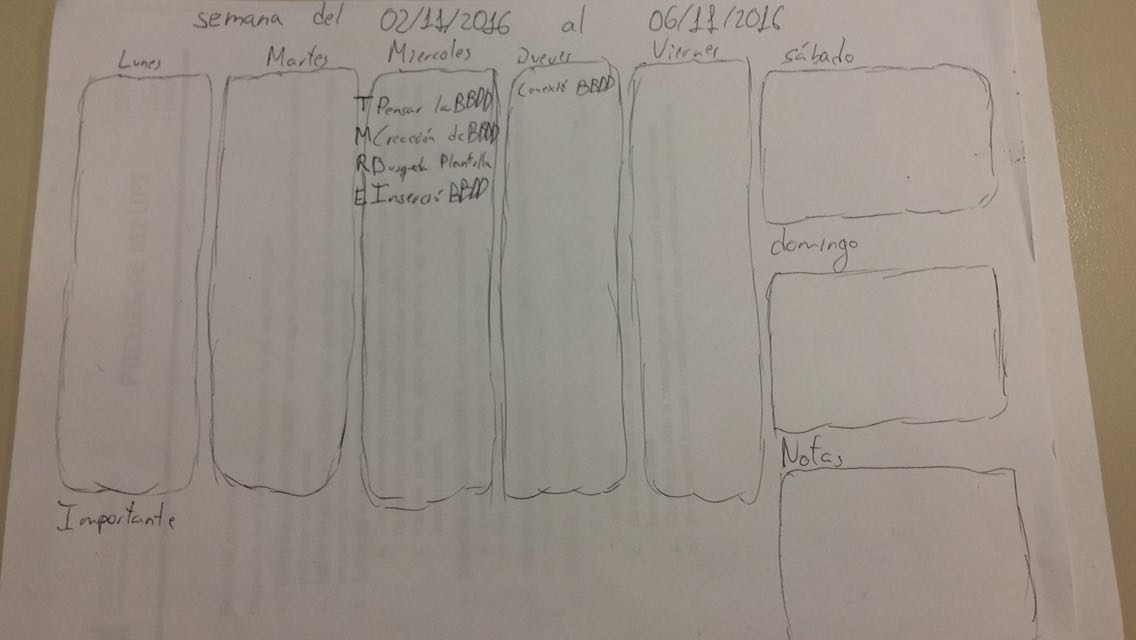 semana del 02/11/2016 al 06/11/2016
Lunes
Martes
Miercoles
T Pensar la BBDD
M Creación de BBDD
R Busqueda Plantilla
E Inserció BBDD
Jueves
Conexió BBDD
Viernes
sábado
domingo
Notas
Importante